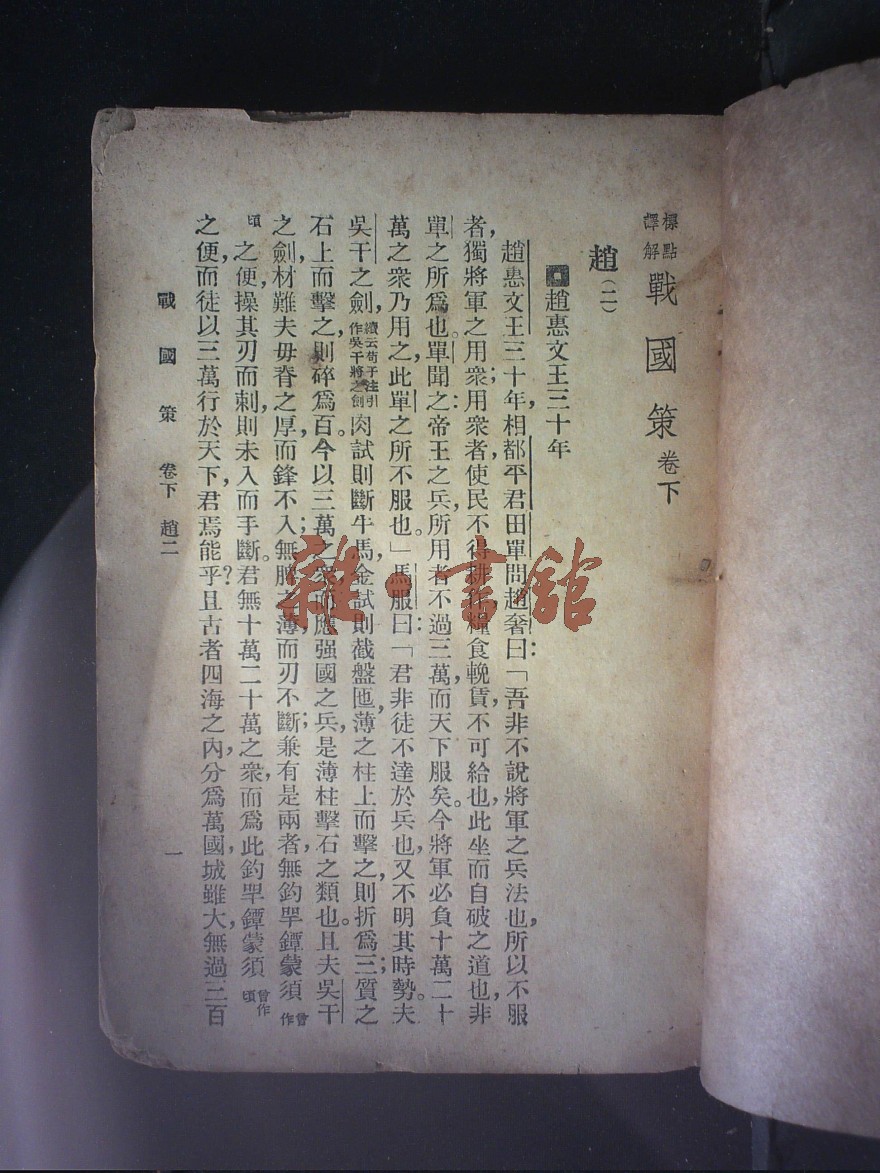 標點譯解 戰國策 卷下
趙(二)
趙惠文王三十年
趙惠文王三十年,相都平君田單問趙奢曰:「吾非不說將軍之兵法也,所以不服
者,獨將軍之用衆;用衆者,使民不得耕作,糧食輓賃,不可給也,此坐而自破之道也,非
單之所爲也。單聞之:帝王之兵,所用者不過三萬,而天下服矣。今將軍必負十萬二十
萬之衆乃用之,此單之所不服也。」馬服曰:「君非徒不達於兵也,又不明其時勢。夫
吳干之劍,續云荀子注引作吳干將之劍肉試則斷牛馬,金試則截盤匜,薄之柱上而擊之,則折爲三;質之
石上而擊之,則碎爲百。今以三萬之衆而應强國之兵,是薄柱擊石之類也。且夫吳干
之劍,材難夫毋脊之厚,而鋒不入;無脾之薄,而刃不斷;兼有是兩者,無釣罕鐔蒙須曾作
頃之便,操其刃而刺,則未入而手斷。君無十萬二十萬之衆,而爲此釣罕鐔蒙須曾作頃
之便,而徒以三萬行於天下,君焉能乎?且古者四海之內,分爲萬國,城雖大,無過三百
戰國策 卷下 趙二
一
雜·書館